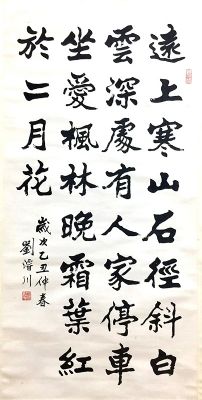 遠上寒山石徑斜白
雲深處有人家停車
坐愛楓林晚霜葉紅
於二月花
歲次乙丑仲春
劉濬川